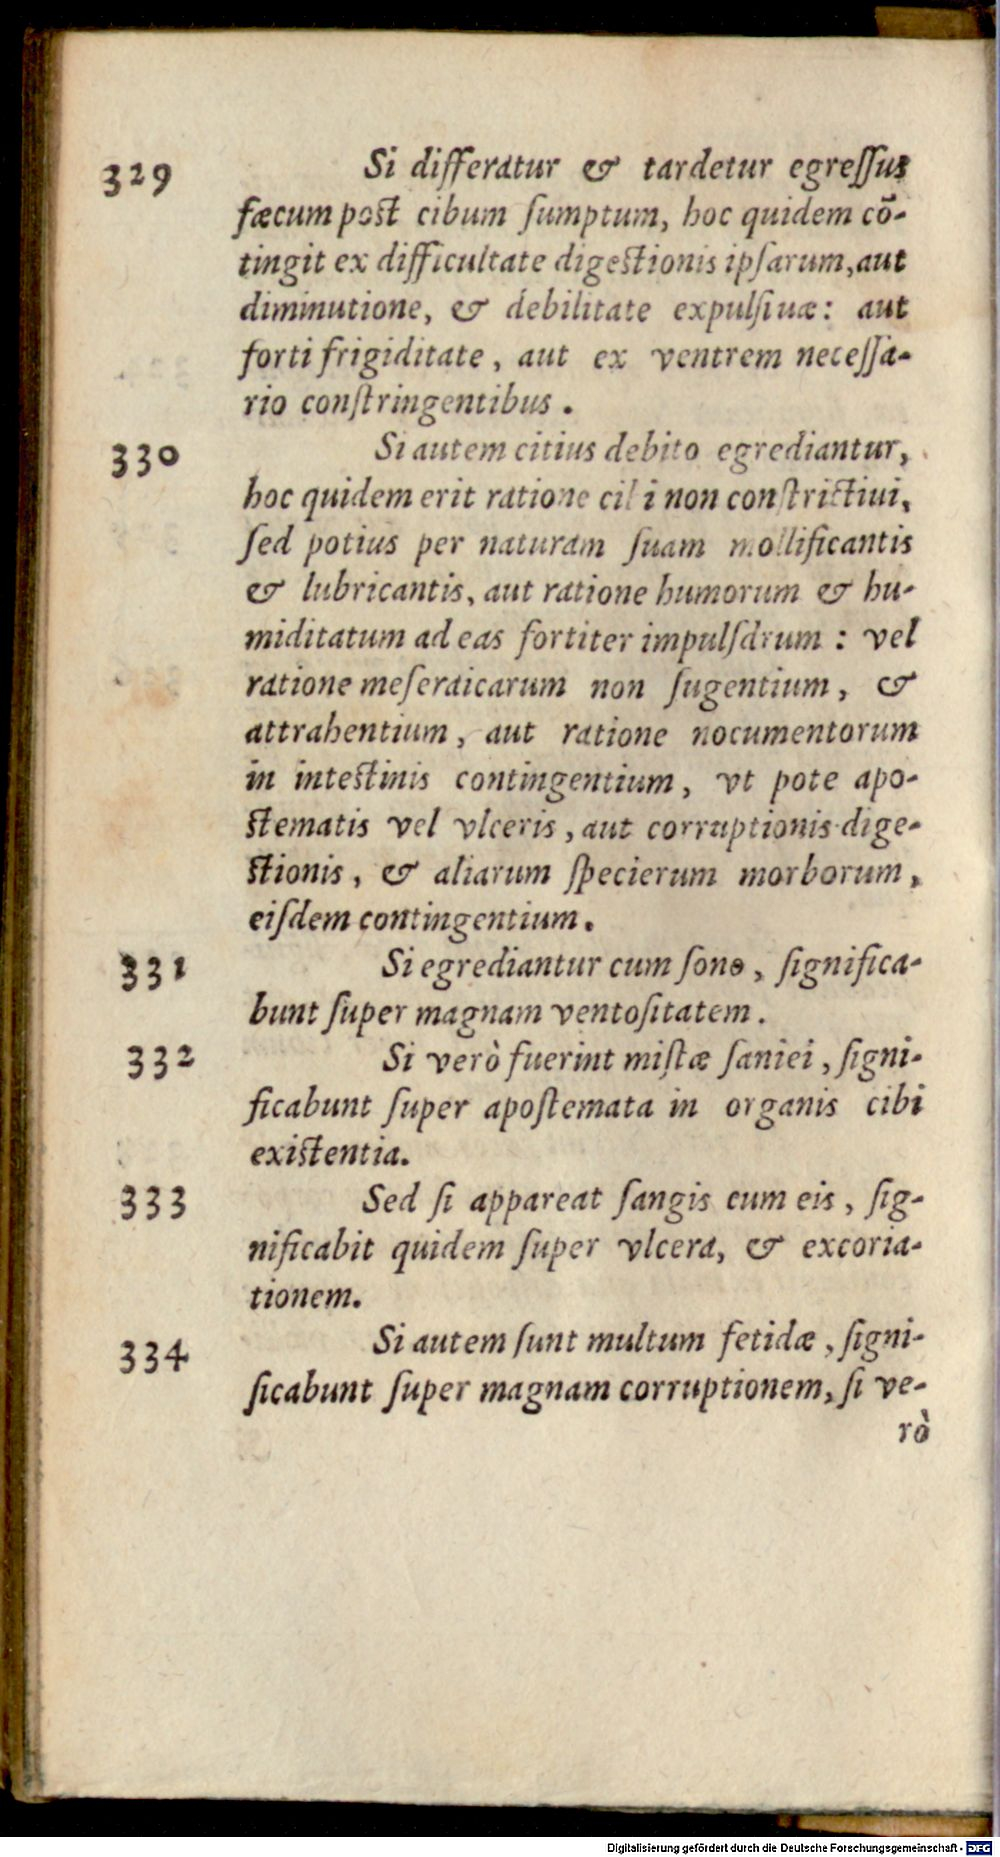 329 Si differatur & tardetur egreſſus
fæcum post cibum ſumptum, hoc quidem cõ-
tingit ex difficultate digestionis ipſarum, aut
diminutione, & debilitate expulſiuæ: aut
forti frigiditate, aut ex ventrem neceſſa-
rio conſtringentibus.
330 Si autem citius debito egrediantur,
hoc quidem erit ratione cibi non conſtrictiui,
ſed potius per naturam ſuam mollificantis
& lubricantis, aut ratione humorum & hu-
miditatum ad eas fortiter impulſarum: vel
ratione meſeraicarum non ſugentium, &
attrahentium, aut ratione nocumentorum
in intestinis contingentium, vt pote apo-
stematis vel vlceris, aut corruptionis dige-
stionis, & aliarum ſpecierum morborum,
eiſdem contingentium.
331 Si egrediantur cum ſono, ſignifica-
bunt ſuper magnam ventoſitatem.
332 Si verò fuerint miſtæ ſaniei, ſigni-
ficabunt ſuper apoſtemata in organis cibi
existentia.
333 Sed ſi appareat ſangis cum eis, ſig-
nificabit quidem ſuper vlcera, & excoria-
tionem.
334 Si autem ſunt multum fetidæ, ſigni-
ficabunt ſuper magnam corruptionem, ſi ve-
rò
Digitalisierung gefördert durch die Deutsche Forschungsgemeinschaft - DFG